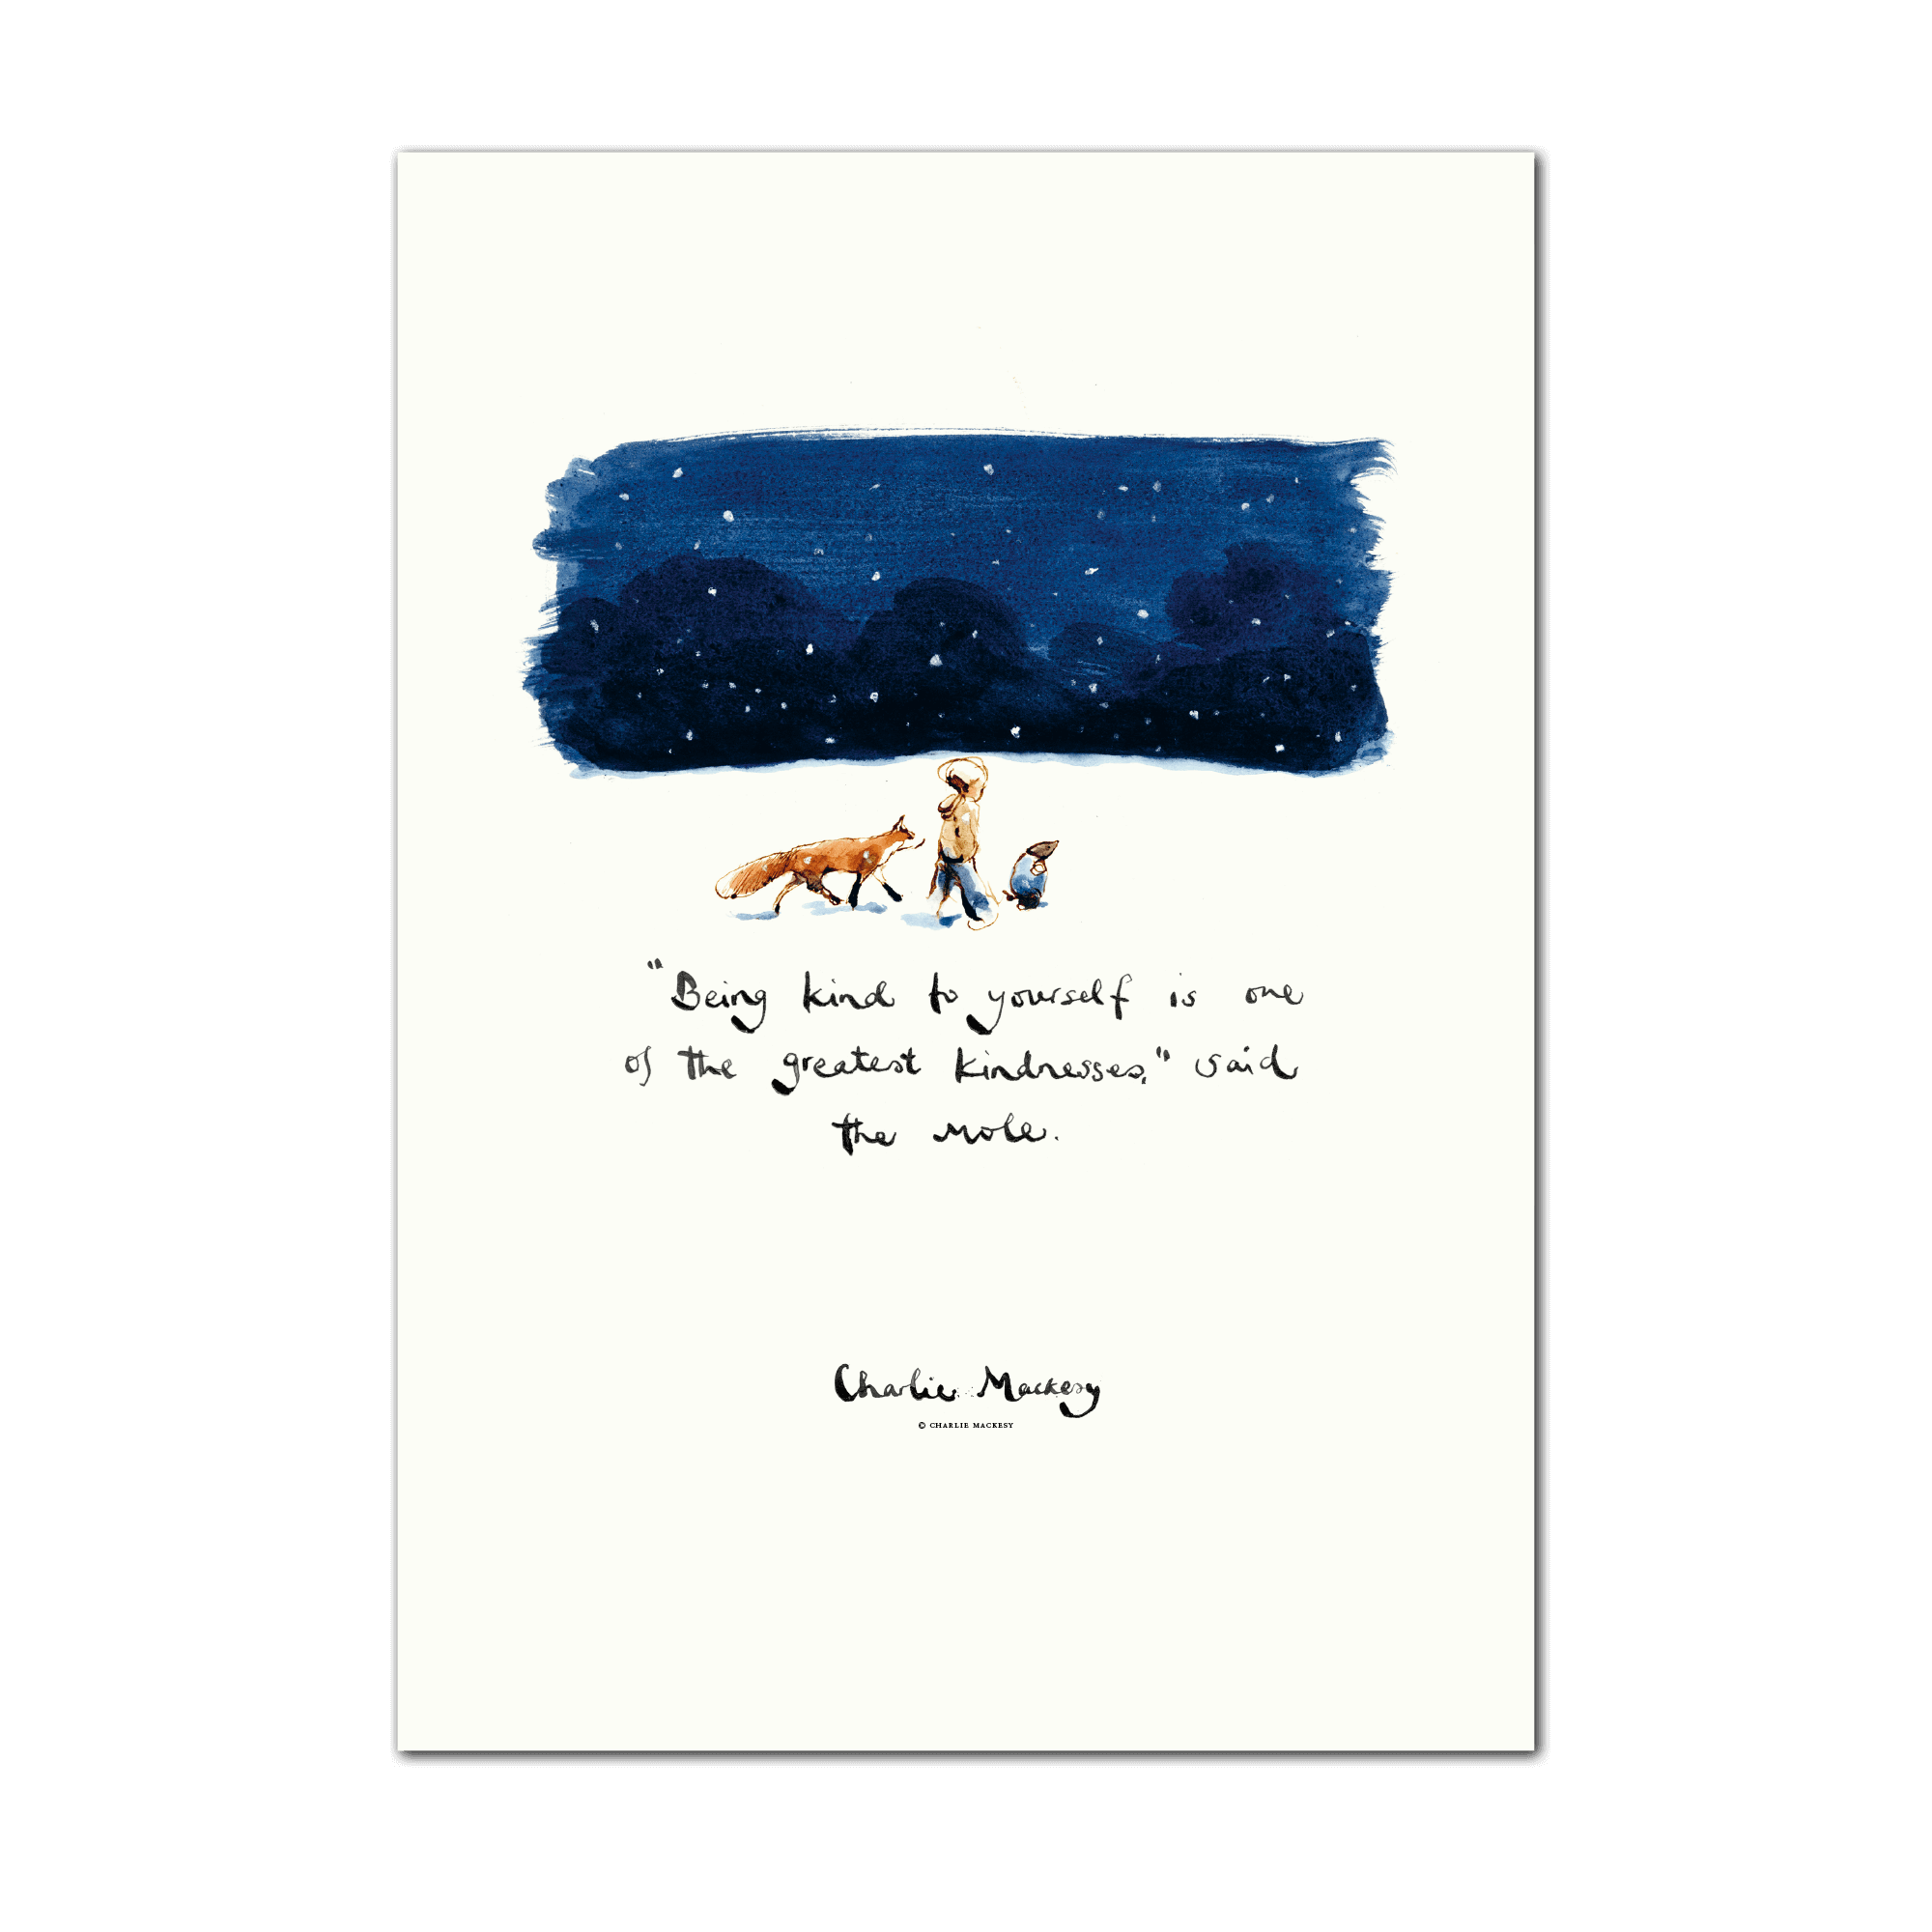 "Being kind to yourself is one
of the greatest kindnesses," said
the mole.
Charlie Mackesy
© CHARLIE MACKESY